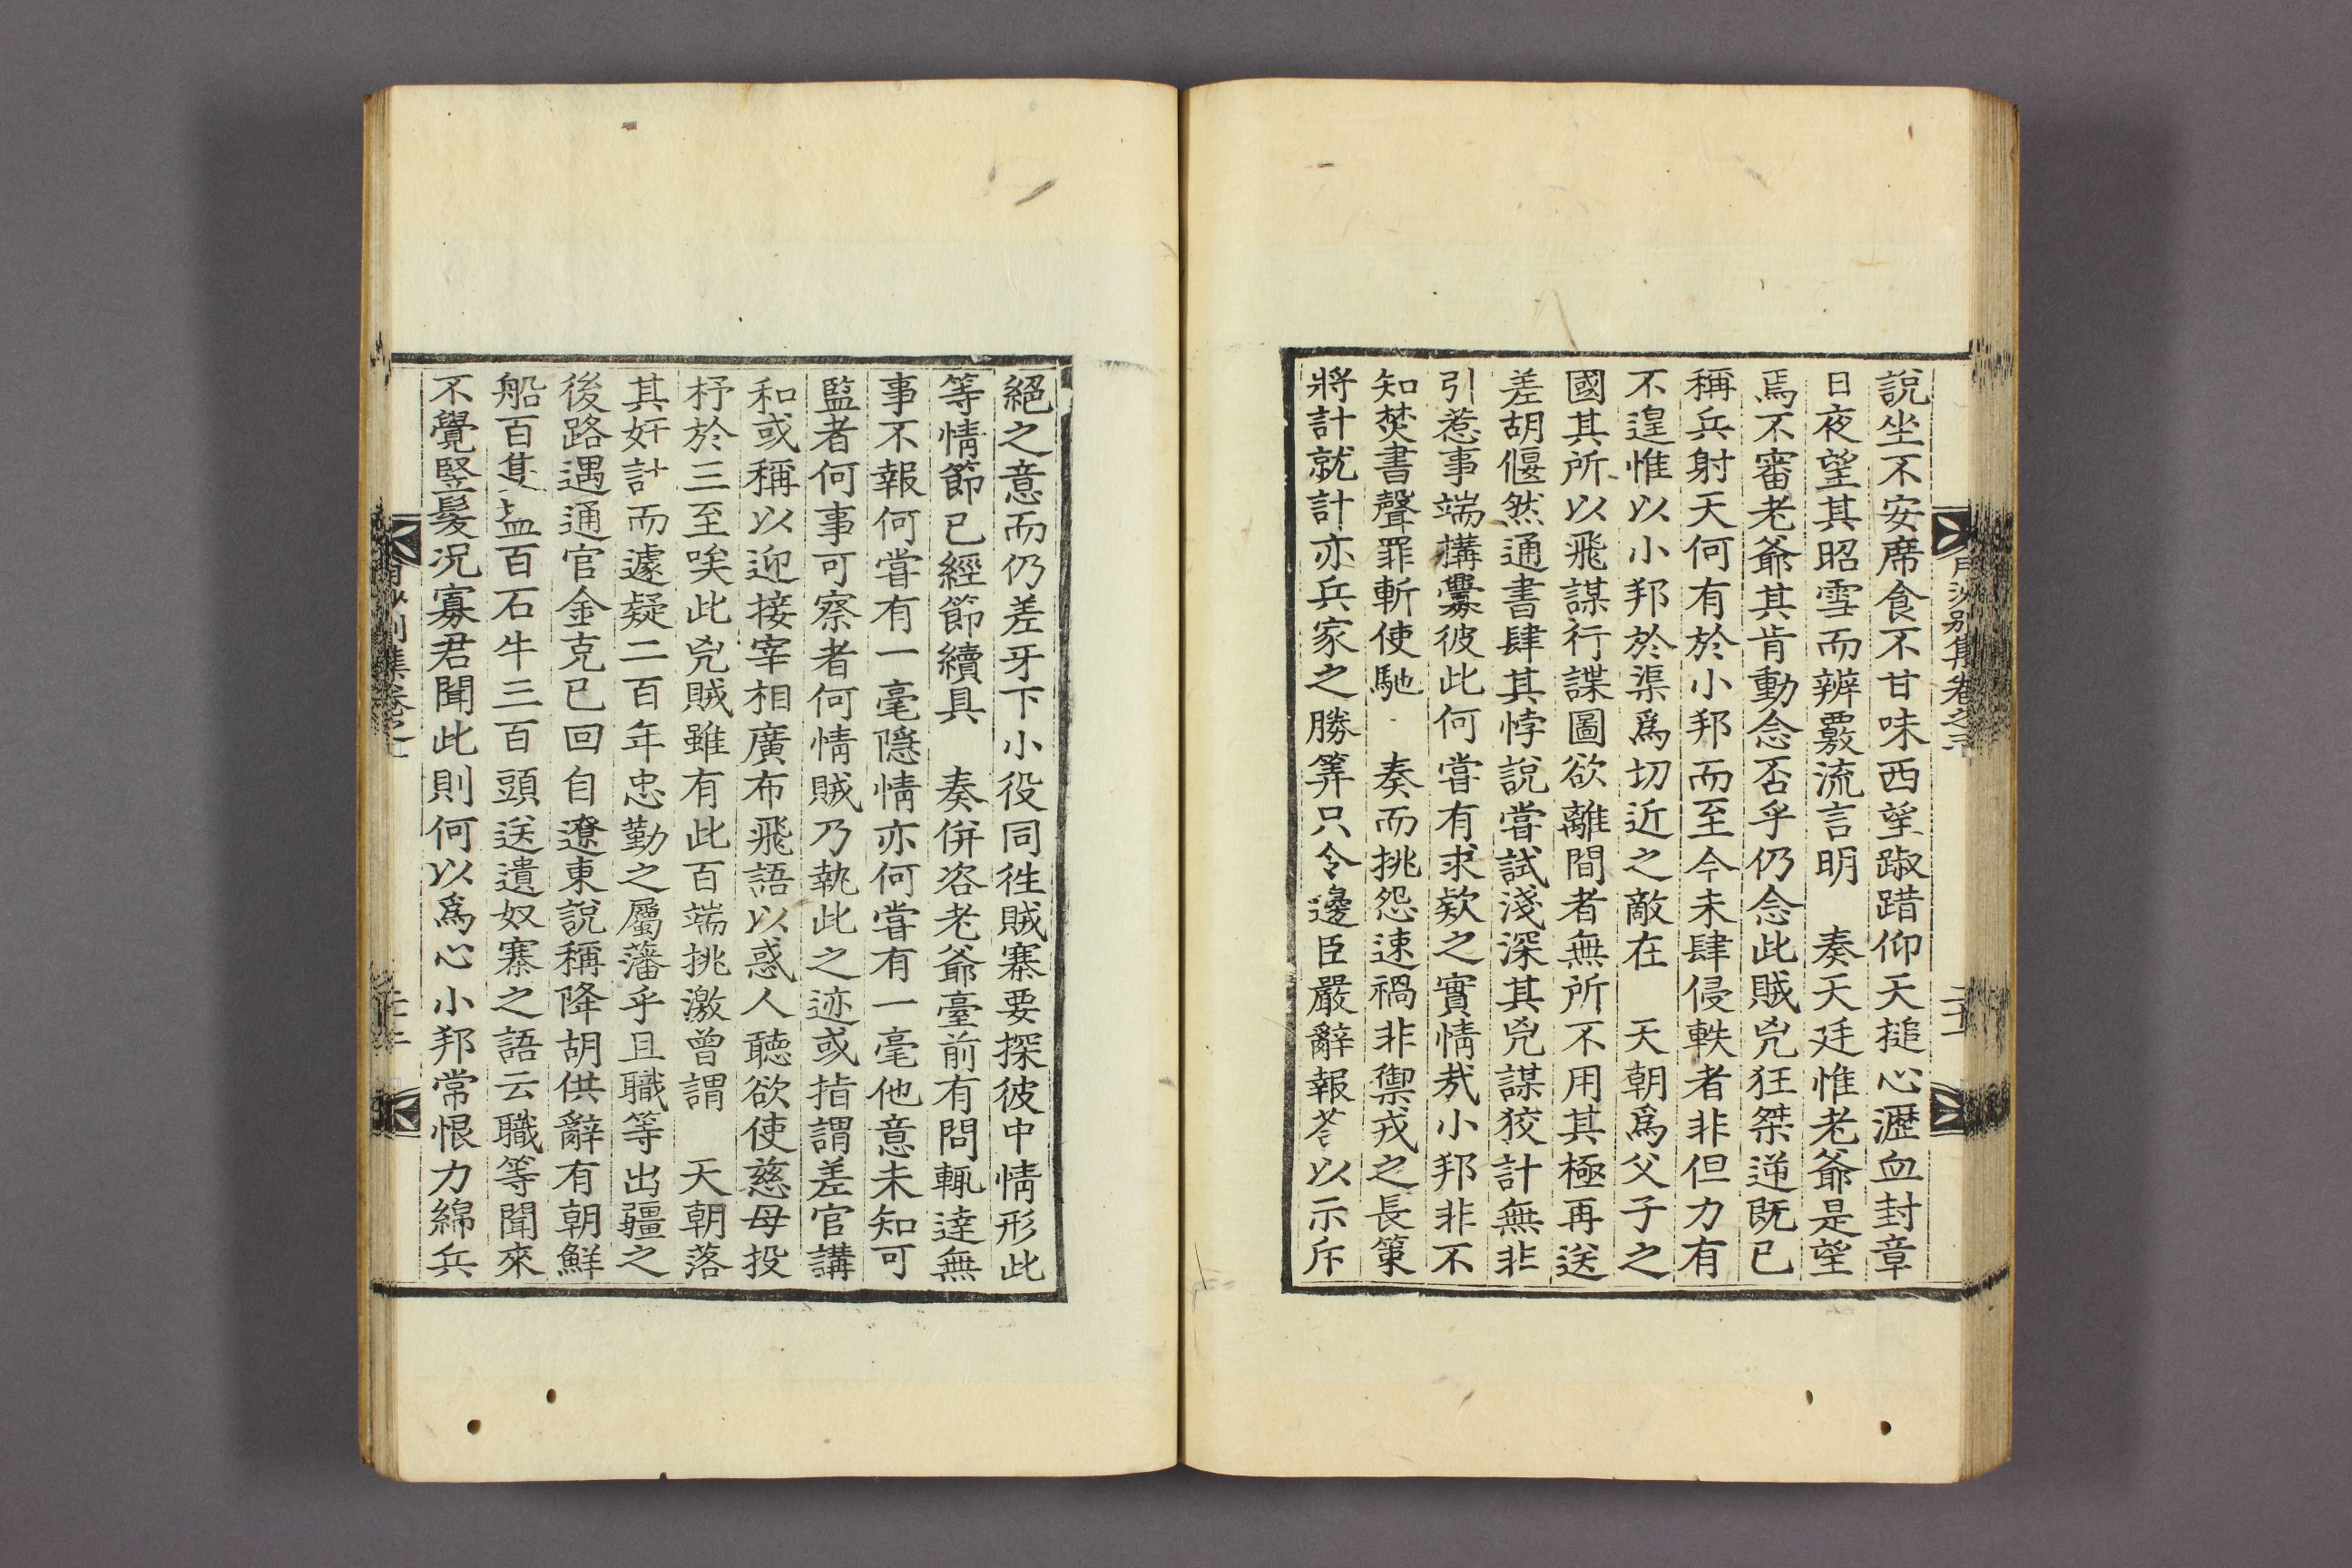 說坐不安席食不甘味西望踧踖仰天搥心瀝血封章
日夜望其昭雪而辨覈流言明　奏天廷惟老爺是望
焉不審老爺其肯動念否乎仍念此賊兇狂桀逆既已
稱兵射天何有於小邦而至今未肆侵軼者非但力有
不遑惟以小邦於渠爲切近之敵在　天朝爲父子之
國其所以飛謀行諜圖欲離間者無所不用其極再送
差胡偃然通書肆其悖說嘗試淺深其兇謀狡計無非
引惹事端搆釁彼此何嘗有求欵之實情㢤小邦非不
知焚書聲罪斬使馳　奏而挑怨速禍非禦戎之長策
將計就計亦兵家之勝筭只令邊臣嚴辭報荅以示斥
絕之意而仍差牙下小役同徃賊寨要探彼中情形此
等情節已經節續具　奏併咨老爺臺前有問輒達無
事不報何嘗有一毫隱情亦何嘗有一毫他意未知可
監者何事可察者何情賊乃執此之迹或指謂差官講
和或稱以迎接宰相廣布飛語以惑人聽欲使慈母投
杼於三至唉此兇賊雖有此百端挑激曾謂　天朝落
其奸計而遽疑二百年忠勤之屬藩乎且職等出疆之
後路遇通官金克已回自遼東說稱降胡供辭有朝鮮
船百隻盐百石牛三百頭送遺奴寨之語云職等聞來
不覺竪髮况寡君聞此則何以爲心小邦常恨力綿兵
月沙別集卷之三